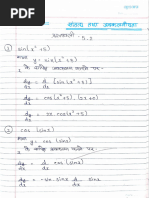 सातत्य तथा अवकलनीयता
प्रश्नावली 5.2
① sin(x² + 5)
माना y = sin(x² + 5)
x के सापेक्ष अवकलन करने पर
dy/dx = d/dx [sin(x² + 5)]
dy/dx = cos(x² + 5) · (2x)
dy/dx = 2x · cos(x² + 5)
② cos(sin x)
माना y = cos(sin x)
x के सापेक्ष अवकलन करने पर
dy/dx = d/dx cos(sin x)
dy/dx = -sin(sin x) d/dx sin x